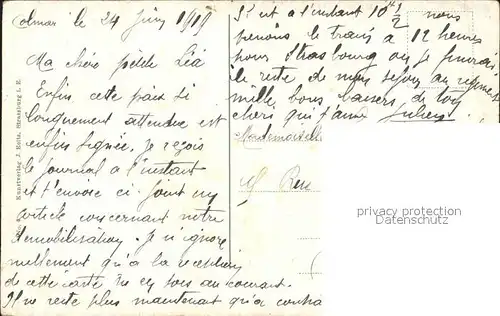 Colmar le 24 Juin 1919
Ma chère petite Léa
Enfin cette paix si
longuement attendue est
enfin signée. Je reçois
le journal à l'instant
et t'envoie ci joint un
article concernant notre
démobilisation. Je n'ignore
nullement qu'à la
de cette carte tu en sois au courant.
Il ne reste plus maintenant qu'à
Il est à l'instant 10h 1/2 nous
prenons le train à 12 heures
pour Strasbourg où je
le reste de mon séjour au
mille bons baisers de ton
chéri qui t'aime Julien
Mademoiselle
Kunstverlag J. Strassburg i. E.
privacy protection
Datenschutz